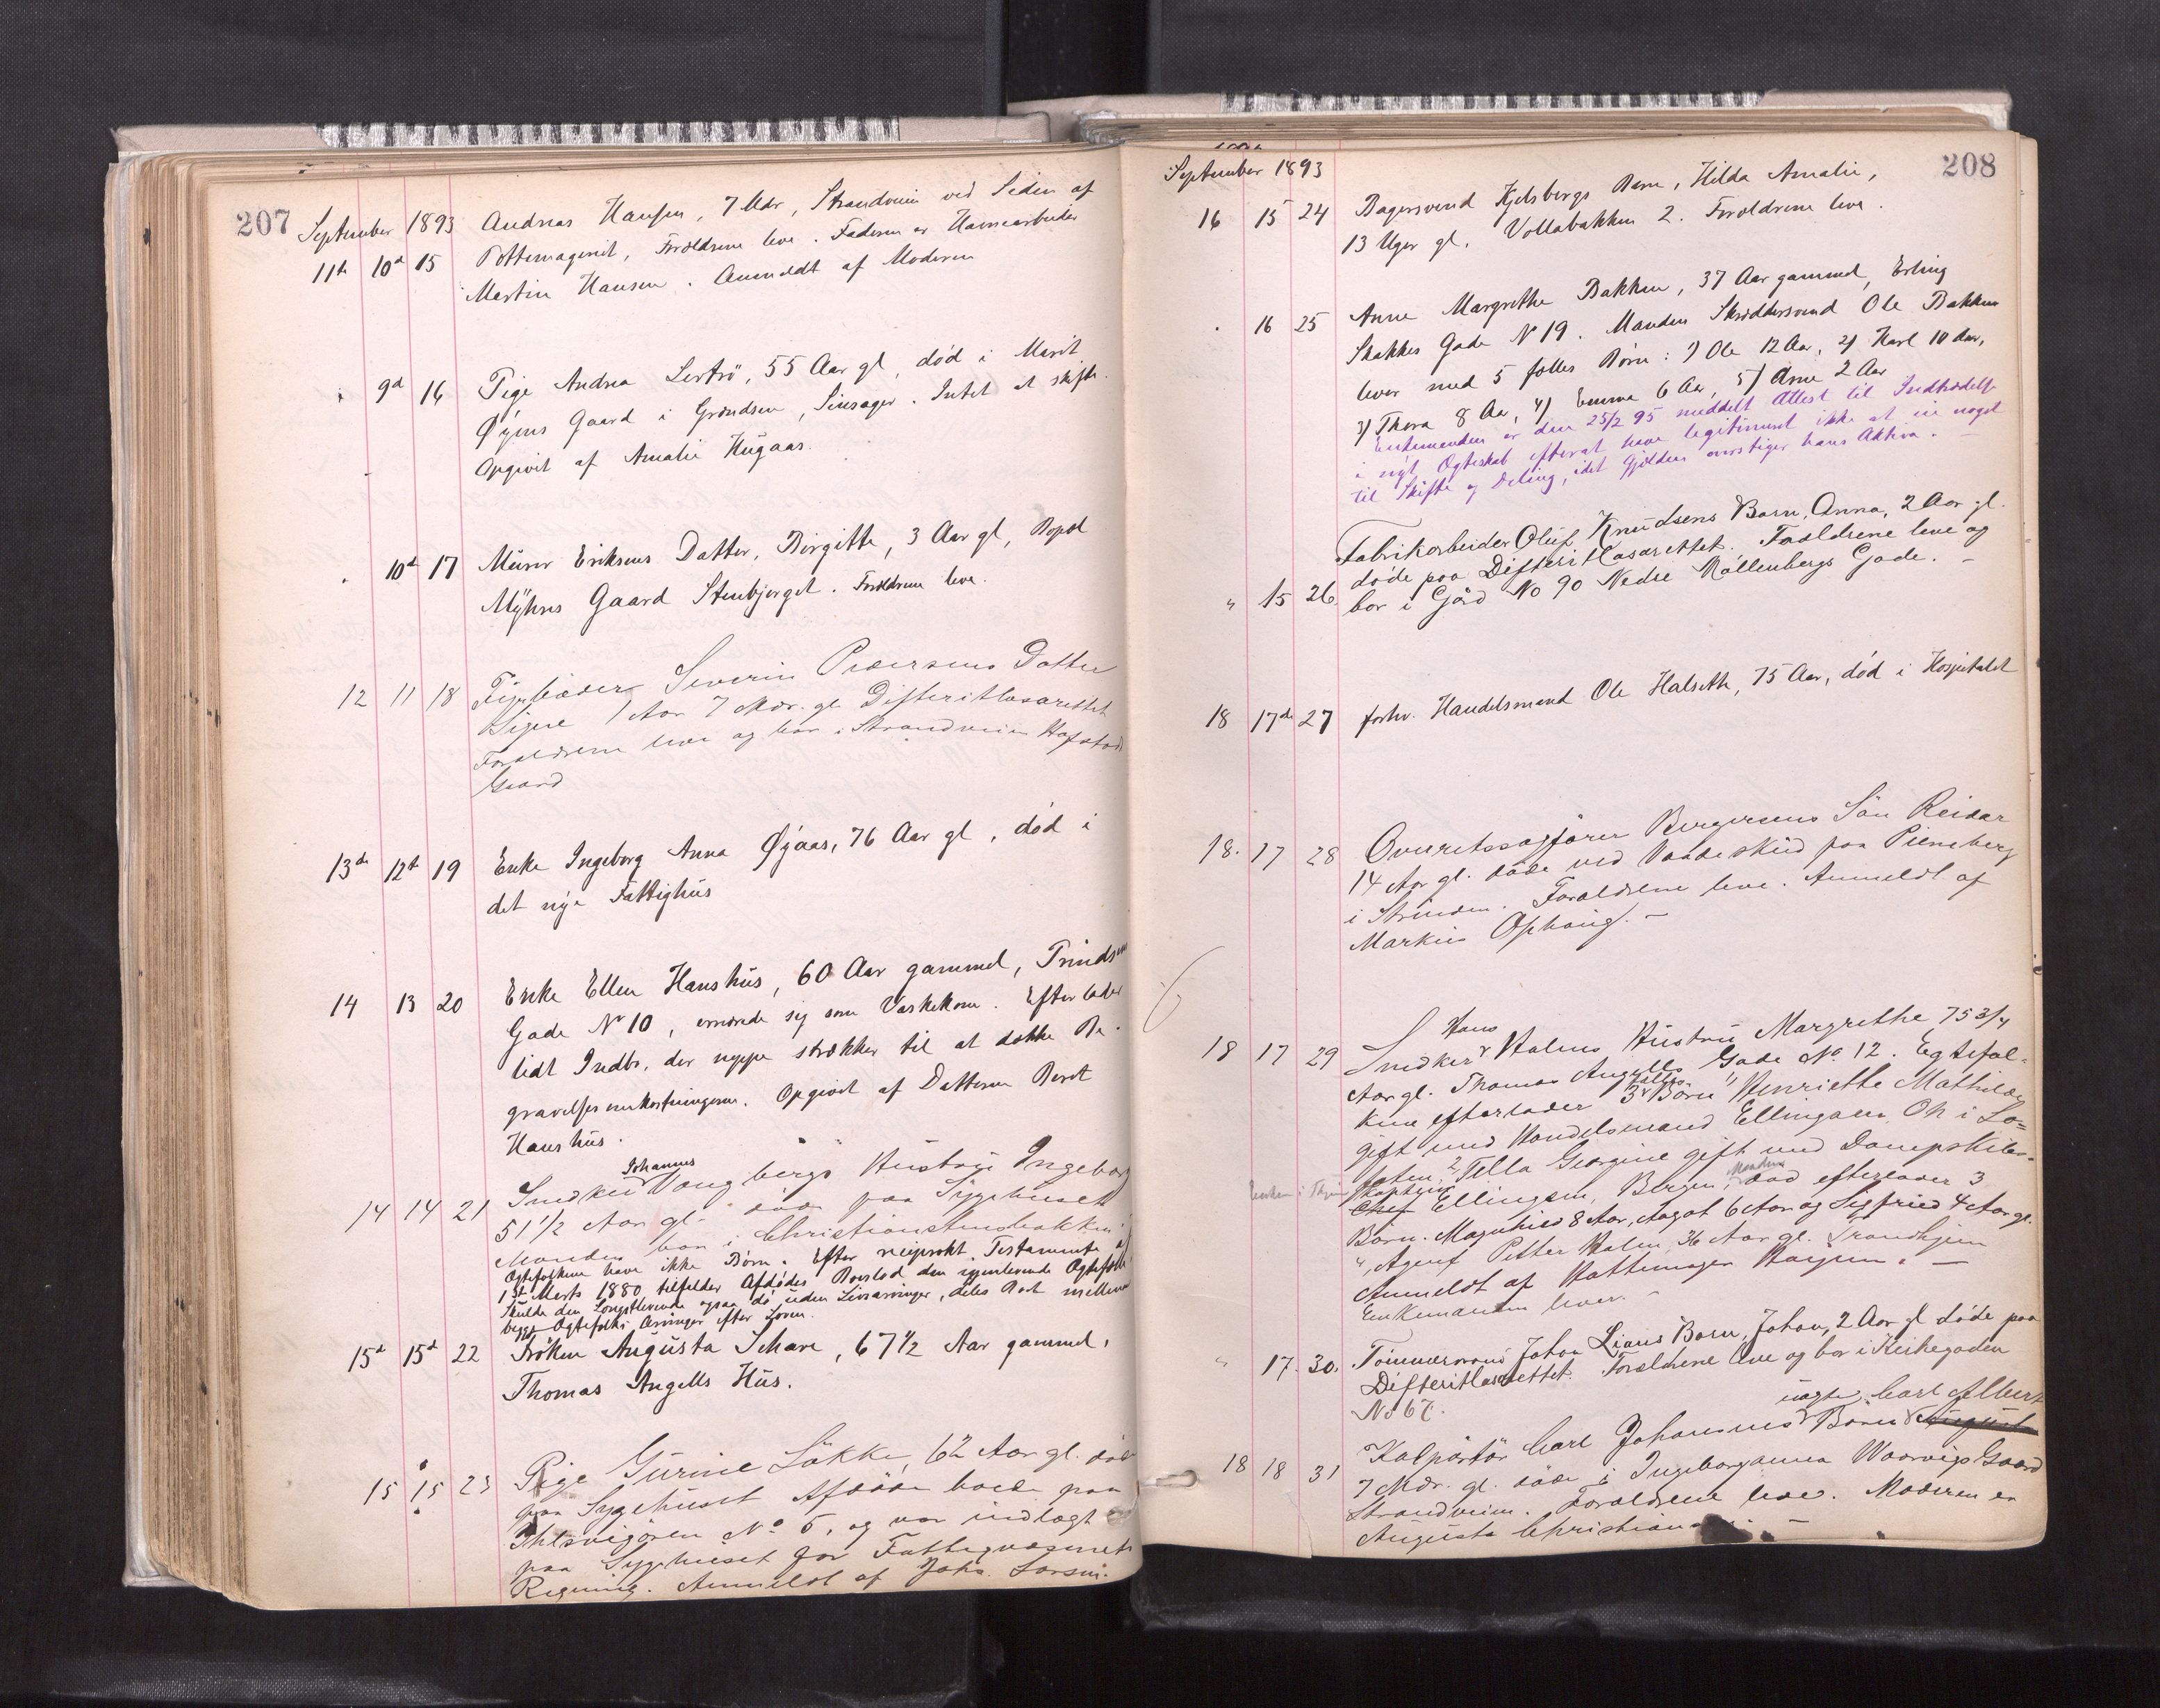 207
September 1893 Andreas Hansen, 7 Mdr, Strandveien ved Siden af
11te 10de 15 Pottemageriet, Forældrene leve. Faderen er Havnearbeider
Martin Hansen. Anmeldt af Moderen
9d 16 Pige Andrea Lertrö, 55 Aar gl, död i Marit
Øyens Gaard i Grændsen, . Intet at skifte.
Opgivet af Amalie Hugaas.
10de 17 Murer Eriksens Datter, Birgitte, 3 Aar gl, Bopæl
Myhrs Gaard Stenbjerget. Forældrene leve.
12 11 18 Severin Pedersens Datter
Signe 1 Aar 7 Mdr. gl. Difteritlasarettet
Forældrene leve og bor i Strandveien Hofstad
Gaard
13de 12te 19 Enke Ingeborg Anna Øyaas, 76 Aar gl, död i
det nye Fattighus
14 13 20 Enke Ellen Hanshus, 60 Aar gammel, Prindsens
Gade No 10, ernærede sig som Vaskekone. Efterlader
lidt Indbo, der neppe strækker til at dække Be-
gravelsesomkostningerne. Opgivet af Datteren Beret
Hanshus.
Johannes
14 14 21 Snedker Vangbergs Hustru Ingeborg
51 1/2 Aar gl. döde paa Sygehuset
Manden bor i Christianstensbakken
Ægtefolkene have ikke Börn. Efter reciprokt Testamente af
1ste Marts 1880 tilfalder Afdödes Boeslod den gjenlevende Ægtefælle
Skulde den Længstlevende ogsaa dö uden Livsarvinger, deles Boet mellem
begge Ægtefolks Arvinger efter Loven.
15d 15d 22 Fröken Augusta Schave, 67 1/2 Aar gammel,
Thomas Angells Hus.
15 15 23 Pige Gurine Lökke, 62 Aar gl. döde
paa Sygehuset Afdöde boede paa
Ihlsvigören No 5, og var indlagt
paa Sygehuset for Fattigvæsenets
Regning. Anmeldt af Johs. Larsen.
208
September 1893
16 15 24 Bagersvend Kjelsbergs Barn, Hilda Amalie,
13 Uger gl. Vollabakken 2. Forældrene leve.
16 25 Anne Margrethe Bakken, 37 Aar gammel, Erling
Skakkes Gade No 19. Manden Skræddersvend Ole Bakken
lever med 5 fælles Börn: 1) Ole 12 Aar, 2) Karl 10 Aar,
3) Thora 8 Aar, 4) Emma 6 Aar, 5) Arne 2 Aar
Enkemanden er den 25/2 95 meddelt Attest til Indtrædelse
i nyt Ægteskab efterat have legitimeret ikke at eie noget
til Skifte og Deling, idet Gjælden overstiger hans Aktiva. -
Fabrikarbeider Oluf Knudsens Barn, Anna, 2 Aar gl.
döde paa Difteritlasarettet. Forældrene leve og
" 15 26. bor i Gård No 90 Nedre Möllenbergs Gade. -
18 17de 27 forhv. Handelsmand Ole Halseth, 75 Aar, död i Hospitalet
18. 17 28 Overretssagförer Bergersens Sön Reidar
14 Aar gl. döde ved Vaadeskud paa Piensberg
i Strinden. Forældrene leve. Anmeldt af
Markus Ophaug. -
Hans
18 17 29 Snedker Halms Hustru Margrethe 75 3/4
Aar gl. Thomas Angells Gade No. 12. Egtefol-
kene efterlader 3 fælles Börn 1, Henriette Mathilde
gift med Handelsmand Ellingsen Öh i Lo-
foten 2, Tella Georgine gift med Dampskibs-
Enken i Thjem kaptein Ellingsen, Bergen, Manden död efterlader 3
Börn. Magnhild 8 Aar, Aagot 6 Aar og Sigfried 4 Aar gl.
Agent Petter Halm, 36 Aar gl. Trondhjem
Anmeldt af Hattemager Hagen. -
Enkemanden lever. -
" 17. 30. Tömmermand Johan Lians Barn, Johan, 2 Aar gl. döde paa
Difteritlasarettet. Forældrene leve og bor i Kirkegaden
No 67.
uægte Carl Albert
18 18 31 Kolportör Carl Johansens Barn August
7 Mdr. gl. döde i Ingeborganna Waarvigs Gaard
Strandveien. Forældrene leve. Moderen er
Augusta Christian